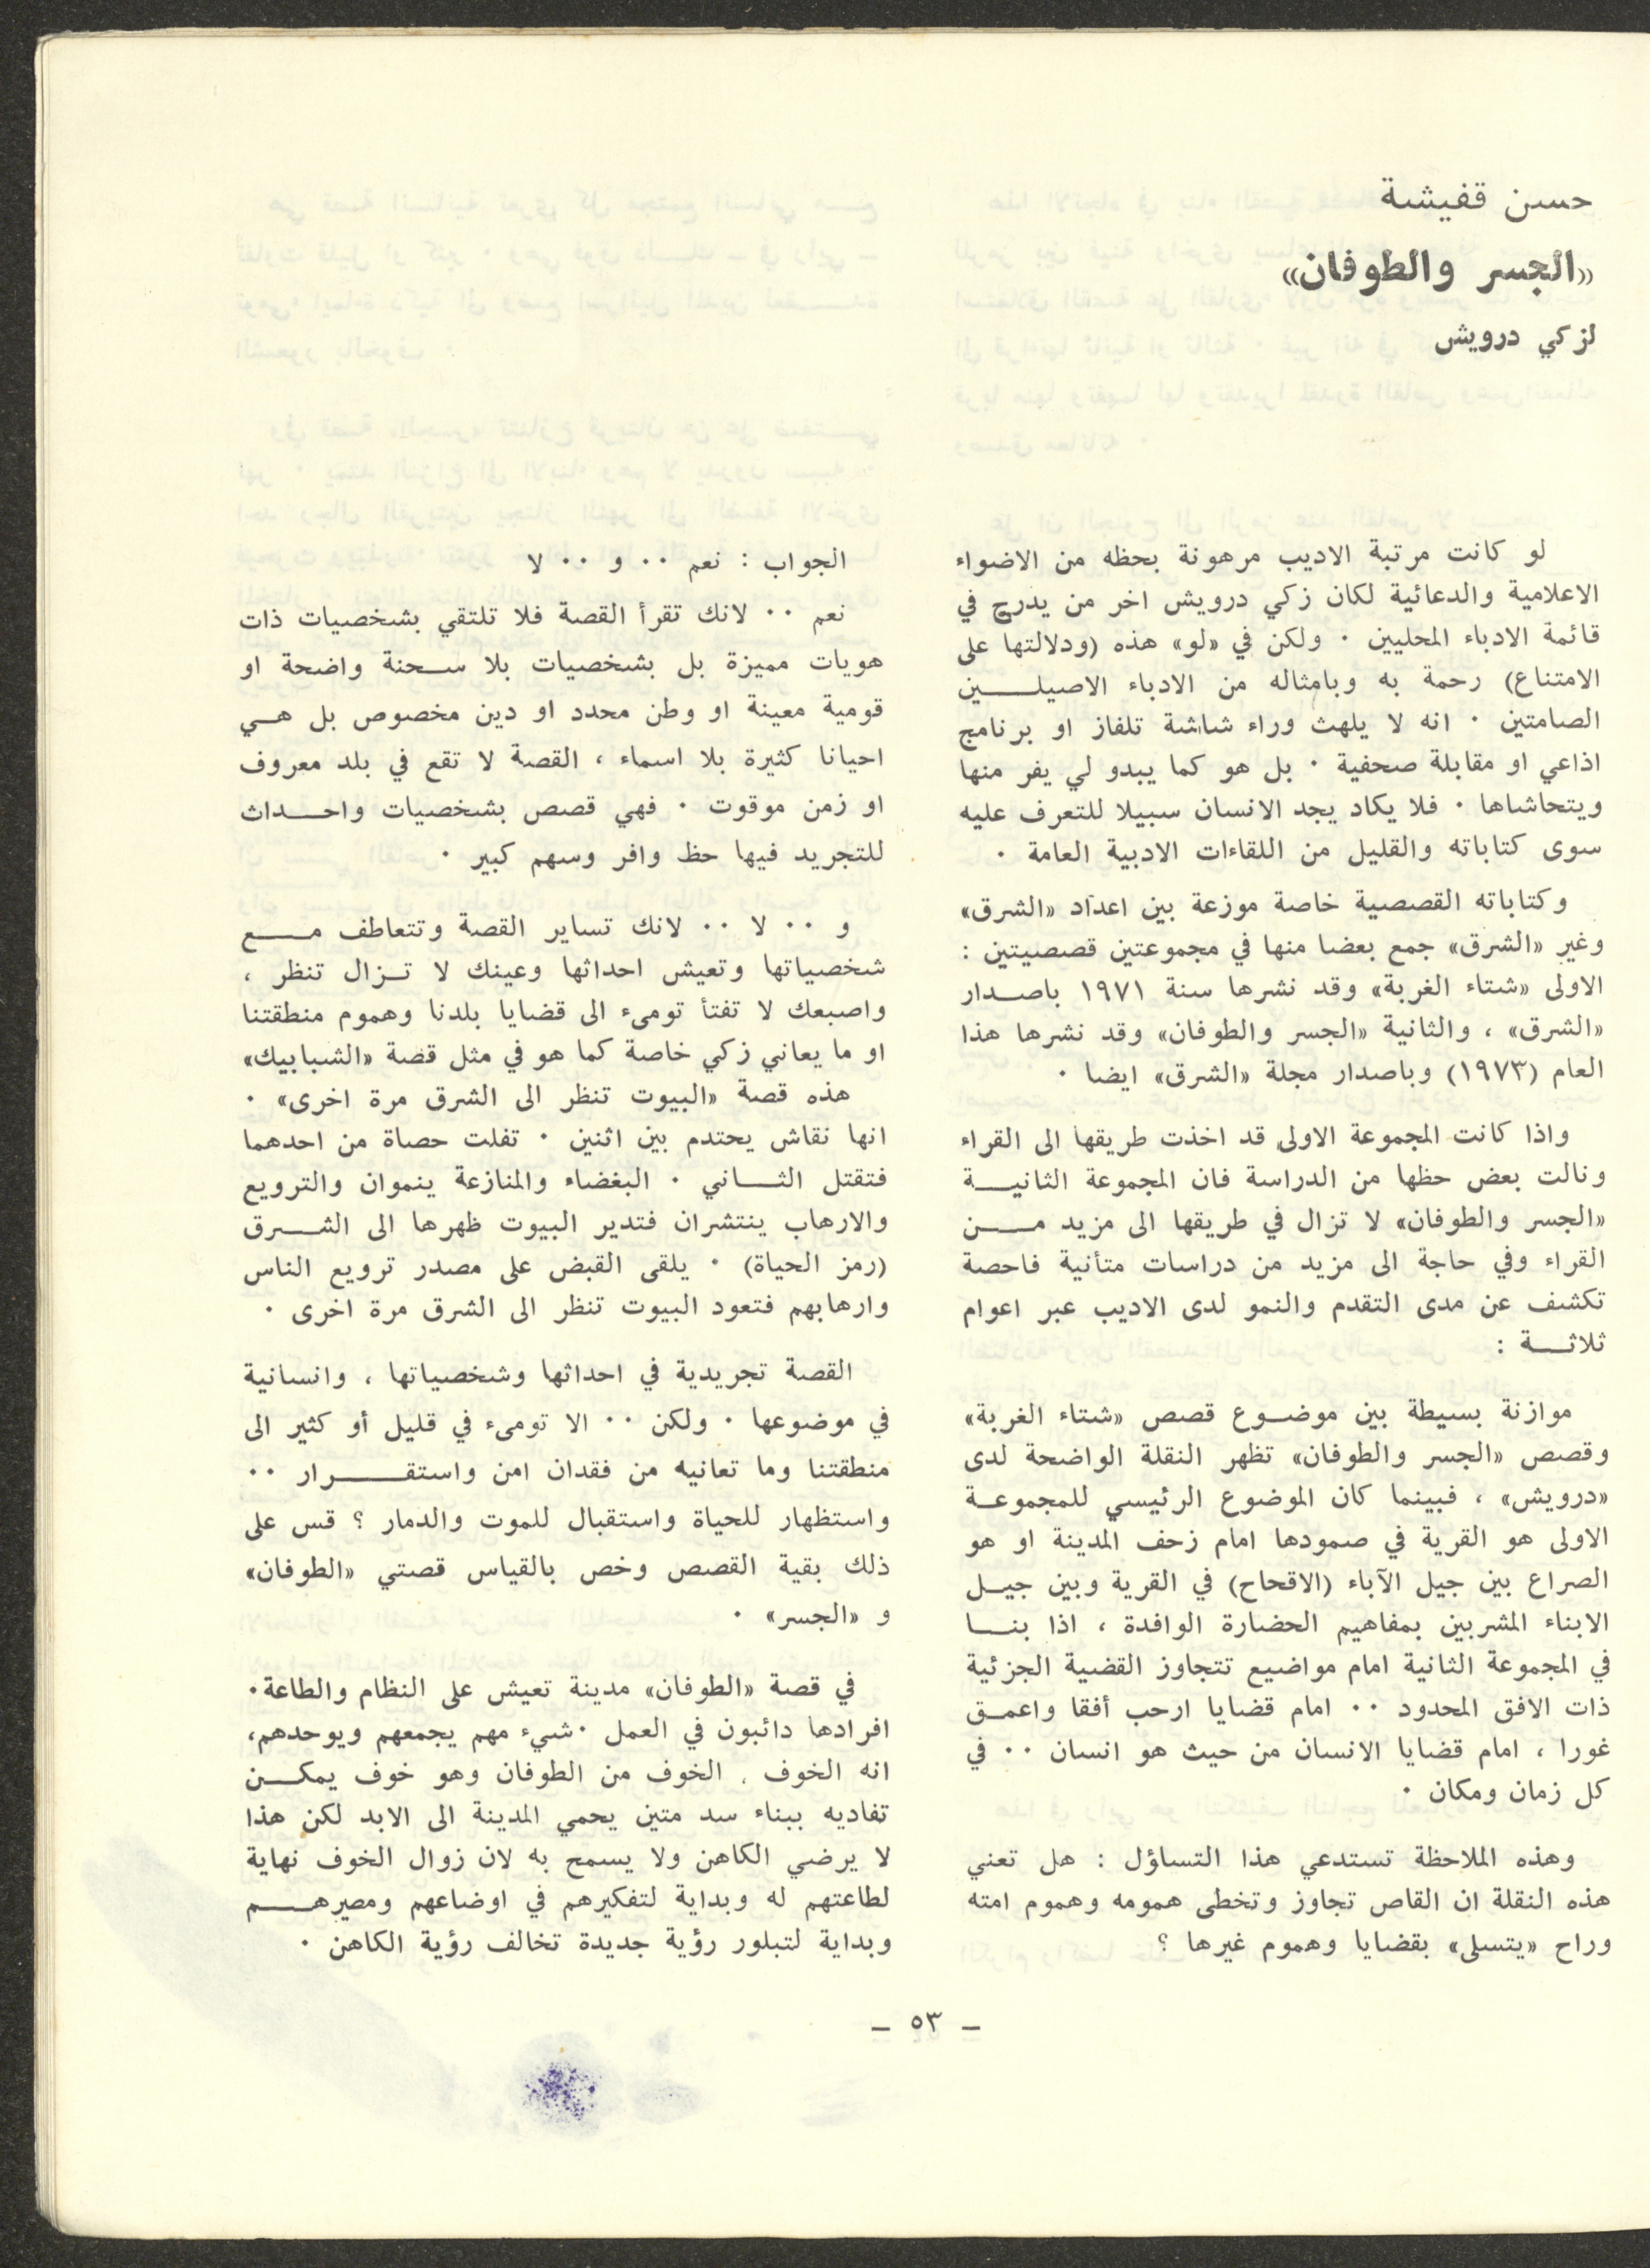 حسن قفيشة
«الجسر والطوفان»
لزكي درويش
لو كانت مرتبة الاديب مرهونة بحظه من الاضواء
الاعلامية والدعائية لكان زكي درويش اخر من يدرج في
قائمة الادباء المحليين ٠ ولكن في «لو» هذه (ودلالتها على
الامتناع) رحمة به وبامثاله من الادباء الاصيلين
الصامتين ٠ انه لا يلهث وراء شاشة تلفاز او برنامج
اذاعي او مقابلة صحفية ٠ بل هو كما يبدو لي يفر منها
ويتحاشاها ٠ فلا يكاد يجد الانسان سبيلا للتعرف عليه
سوى كتاباته والقليل من اللقاءات الادبية العامة ٠
وكتاباته القصصية خاصة موزعة بين اعداد «الشرق»
وغير «الشرق» جمع بعضا منها في مجموعتين قصصيتين :
الاولى «شتاء الغربة» وقد نشرها سنة ١٩٧١ باصدار
«الشرق» ، والثانية «الجسر والطوفان» وقد نشرها هذا
العام (١٩٧٣) وباصدار مجلة «الشرق» ايضا ٠
واذا كانت المجموعة الاولى قد اخذت طريقها الى القراء
ونالت بعض حظها من الدراسة فان المجموعة الثانية
«الجسر والطوفان» لا تزال في طريقها الى مزيد من
القراء وفي حاجة الى مزيد من دراسات متأنية فاحصة
تكشف عن مدى التقدم والنمو لدى الاديب عبر اعوام
ثلاثة :
موازنة بسيطة بين موضوع قصص «شتاء الغربة»
وقصص «الجسر والطوفان» تظهر النقلة الواضحة لدى
«درويش» ، فبينما كان الموضوع الرئيسي للمجموعة
الاولى هو القرية في صمودها امام زحف المدينة او هو
الصراع بين جيل الآباء (الاقحاح) في القرية وبين جيل
الابناء المشربين بمفاهيم الحضارة الوافدة ، اذا بنا
في المجموعة الثانية امام مواضيع تتجاوز القضية الجزئية
ذات الافق المحدود ٠٠ امام قضايا ارحب أفقا واعمق
غورا ، امام قضايا الانسان من حيث هو انسان ٠٠ في
كل زمان ومكان ٠
وهذه الملاحظة تستدعي هذا التساؤل : هل تعني
هذه النقلة ان القاص تجاوز وتخطى همومه وهموم امته
وراح «يتسلى» بقضايا وهموم غيرها ؟
الجواب : نعم ٠٠ و ٠٠ لا
نعم ٠٠ لانك تقرأ القصة فلا تلتقي بشخصيات ذات
هويات مميزة بل بشخصيات بلا سحنة واضحة او
قومية معينة او وطن محدد او دين مخصوص بل هي
احيانا كثيرة بلا اسماء ، القصة لا تقع في بلد معروف
او زمن موقوت ٠ فهي قصص بشخصيات واحداث
للتجريد فيها حظ وافر وسهم كبير ٠
و ٠٠ لا ٠٠ لانك تساير القصة وتتعاطف مع
شخصياتها وتعيش احداثها وعينك لا تزال تنظر ،
واصبعك لا تفتأ تومىء الى قضايا بلدنا وهموم منطقتنا
او ما يعاني زكي خاصة كما هو في مثل قصة «الشبابيك»
هذه قصة «البيوت تنظر الى الشرق مرة اخرى» ٠
انها نقاش يحتدم بين اثنين ٠ تفلت حصاة من احدهما
فتقتل الثاني ٠ البغضاء والمنازعة ينموان والترويع
والارهاب ينتشران فتدير البيوت ظهرها الى الشرق
(رمز الحياة) ٠ يلقى القبض على مصدر ترويع الناس
وارهابهم فتعود البيوت تنظر الى الشرق مرة اخرى ٠
القصة تجريدية في احداثها وشخصياتها ، وانسانية
في موضوعها ٠ ولكن ٠٠ الا تومىء في قليل أو كثير الى
منطقتنا وما تعانيه من فقدان امن واستقرار ٠٠
واستظهار للحياة واستقبال للموت والدمار ؟ قس على
ذلك بقية القصص وخص بالقياس قصتي «الطوفان»
و «الجسر» ٠
في قصة «الطوفان» مدينة تعيش على النظام والطاعة٠
افرادها دائبون في العمل ٠شيء مهم يجمعهم ويوحدهم،
انه الخوف ، الخوف من الطوفان وهو خوف يمكن
تفاديه ببناء سد متين يحمي المدينة الى الابد لكن هذا
لا يرضي الكاهن ولا يسمح به لان زوال الخوف نهاية
لطاعتهم له وبداية لتفكيرهم في اوضاعهم ومصيرهم
وبداية لتبلور رؤية جديدة تخالف رؤية الكاهن ٠
— ٥٣ —